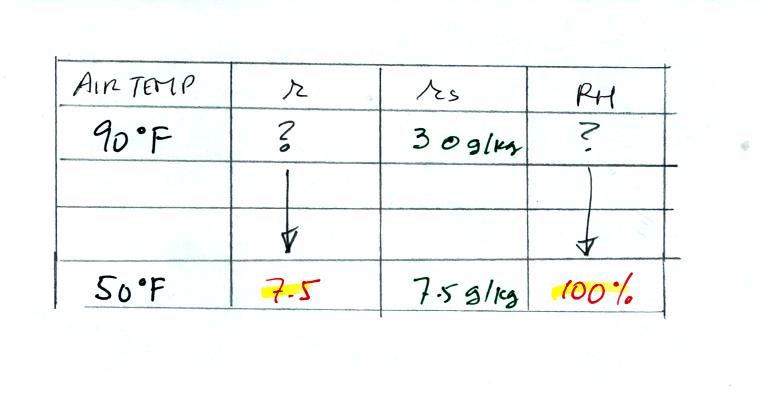 AIR TEMP r rs RH
90°F ? 30 g/kg ?
50°F 7.5 7.5 g/kg 100%